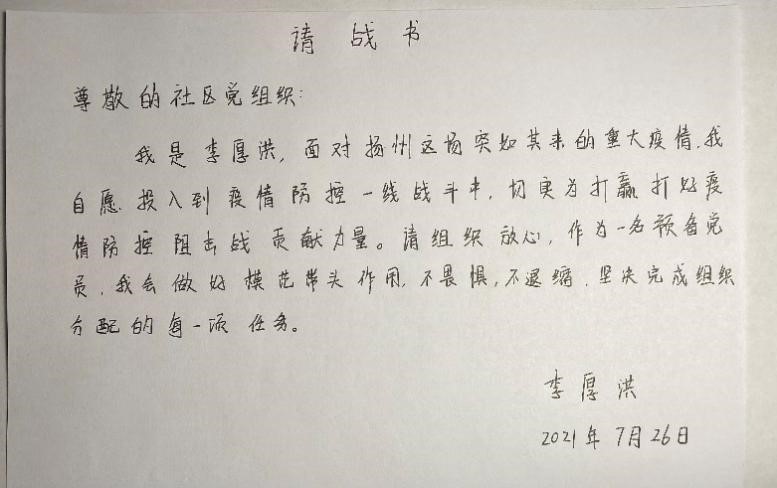 请战书
尊敬的社区党组织:
我是李厚洪,面对扬州这场突如其来的重大疫情,我
自愿投入到疫情防控一线战斗中,切实为打赢打好疫
情防控阻击战贡献力量。请组织放心,作为一名预备党
员,我会做好模范带头作用,不畏惧,不退缩,坚决完成组织
分配的每一项任务。
李厚洪
2021年7月26日